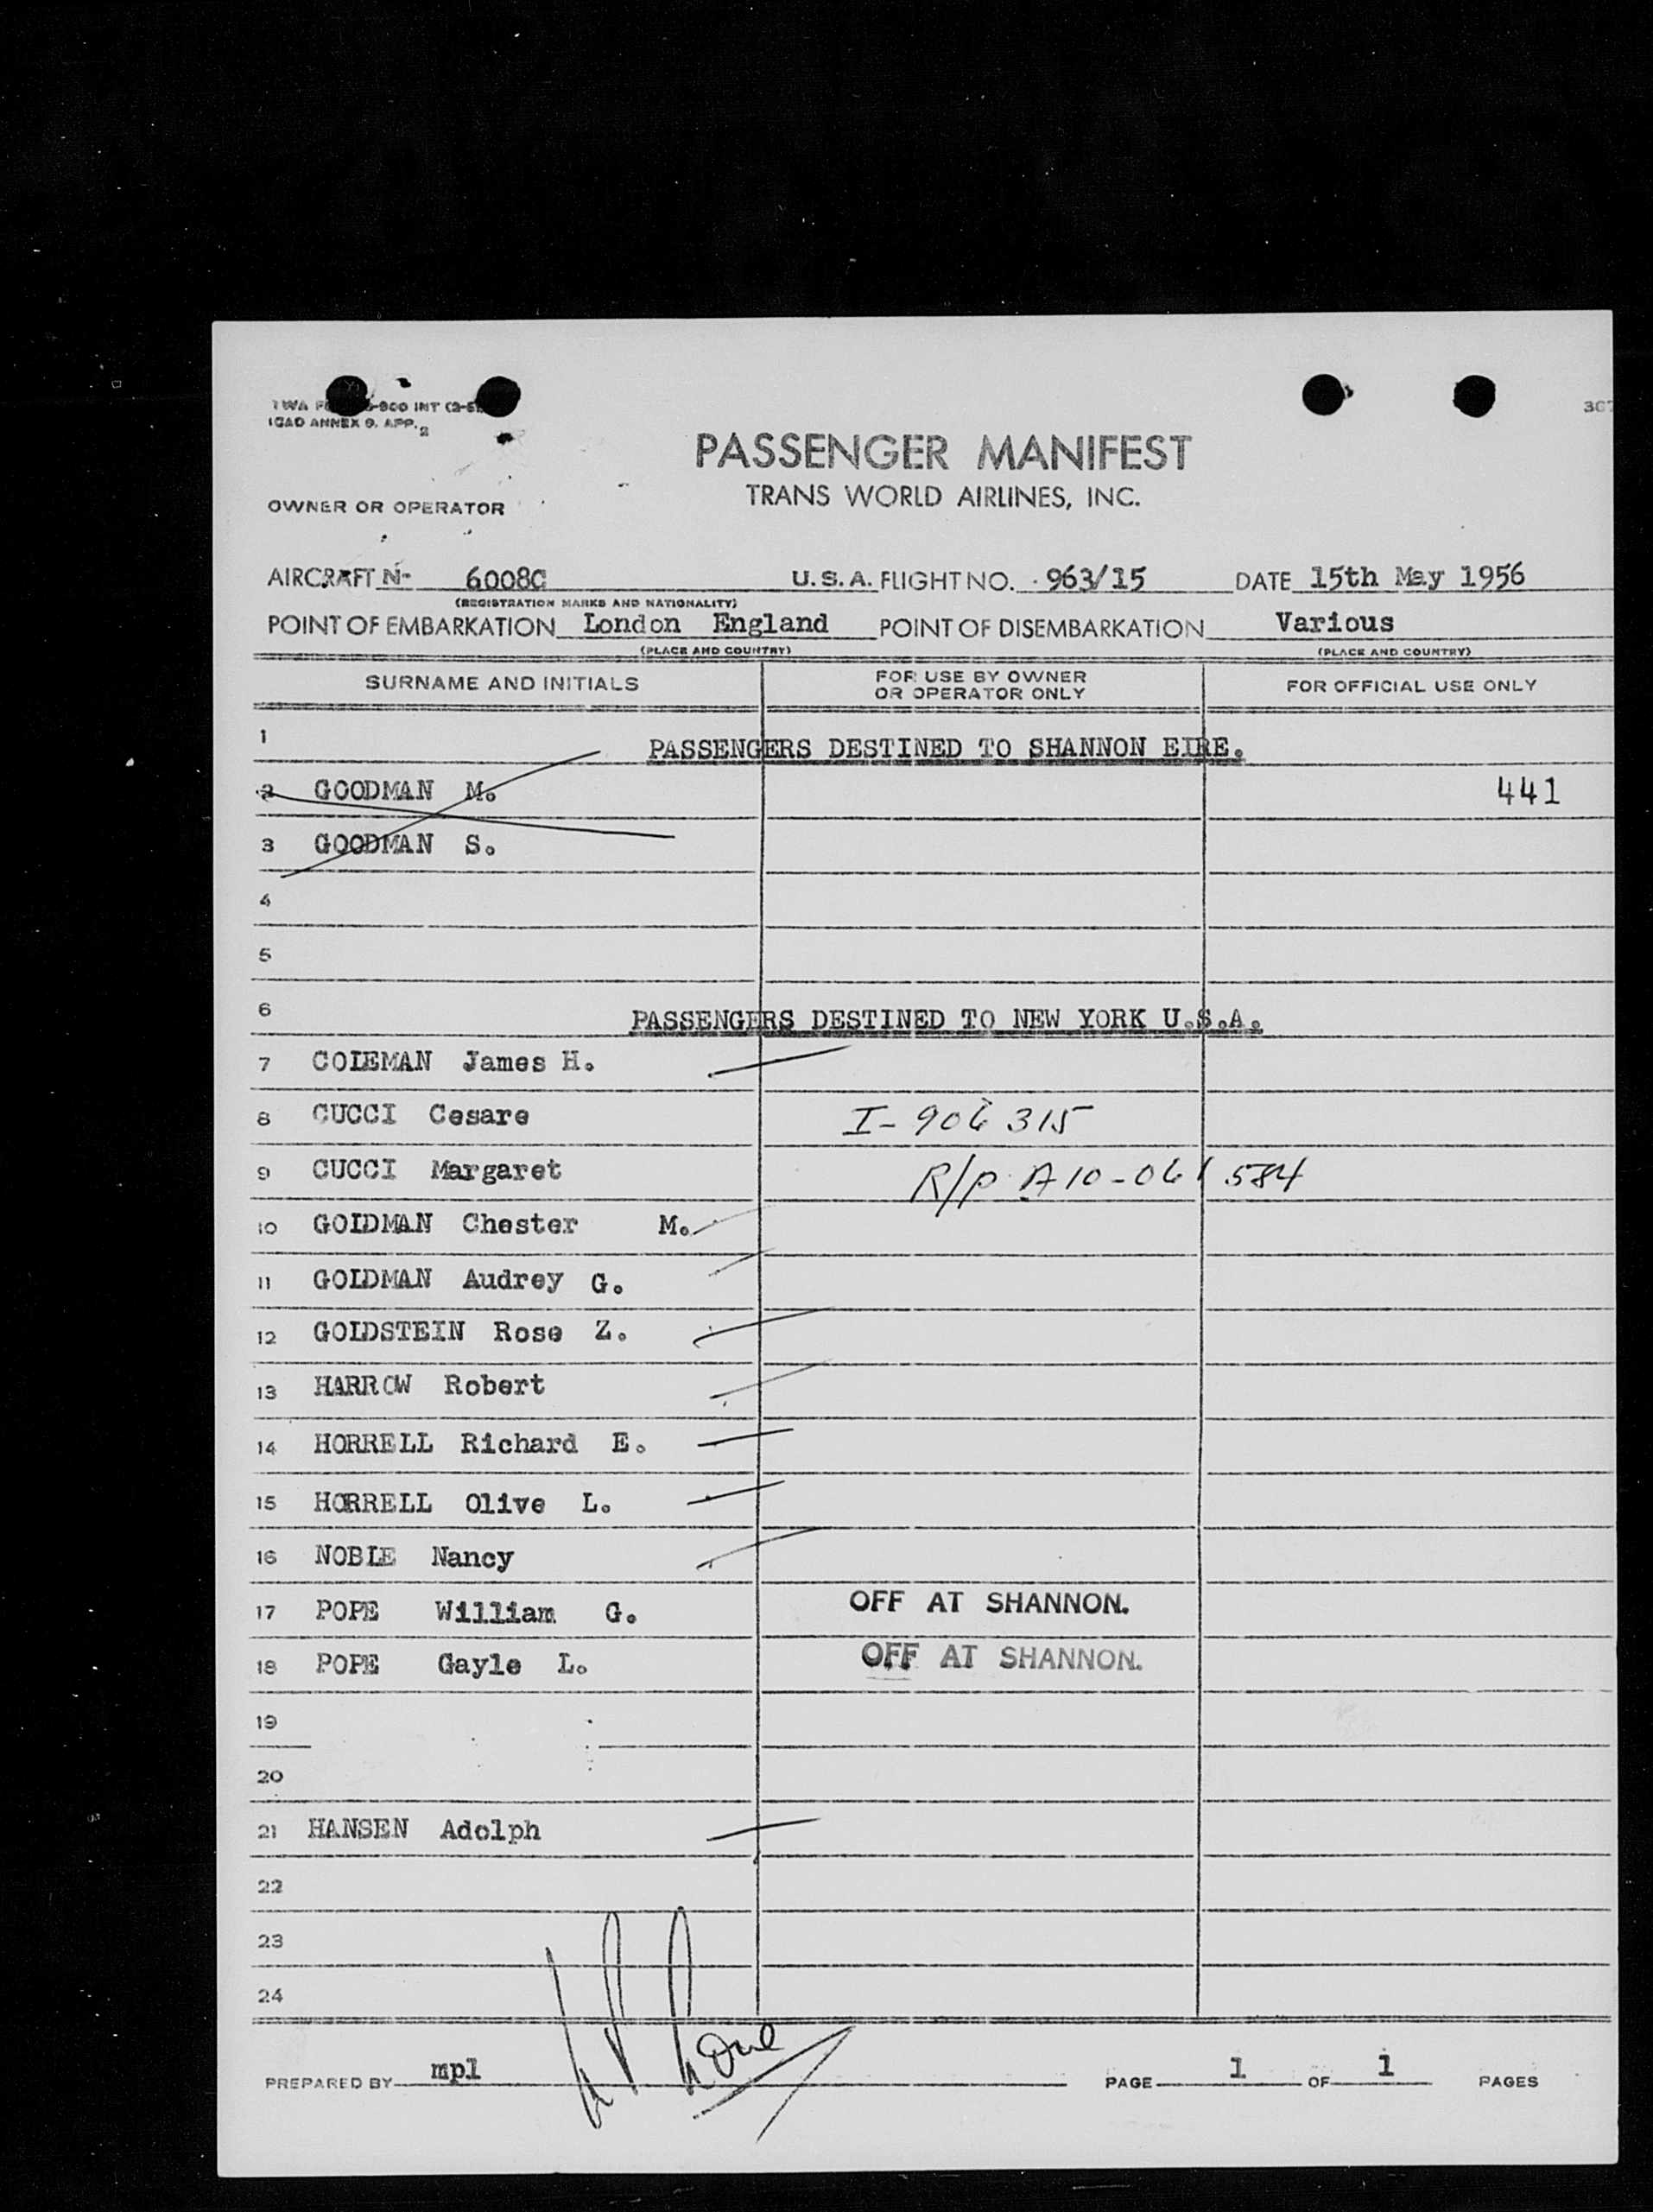 ICAO ANNEX 9. APP. 2
PASSENGER MANIFEST
TRANS WORLD AIRLINES, INC.
OWNER OR OPERATOR
AIRCRAFT N- 6008C U.S.A. FLIGHT NO. 963/15 DATE 15th May 1956
(REGISTRATION MARKS AND NATIONALITY)
POINT OF EMBARKATION London England POINT OF DISEMBARKATION Various
(PLACE AND COUNTRY) (PLACE AND COUNTRY)
SURNAME AND INITIALS FOR USE BY OWNER OR OPERATOR ONLY FOR OFFICIAL USE ONLY
1 PASSENGERS DESTINED TO SHANNON EIRE.
2 GOODMAN M. 441
3 GOODMAN S.
4
5
6 PASSENGERS DESTINED TO NEW YORK U.S.A.
7 COLEMAN James H.
8 CUCCI Cesare I-906315
9 CUCCI Margaret R/P A10-061584
10 GOLDMAN Chester M.
11 GOLDMAN Audrey G.
12 GOLDSTEIN Rose Z.
13 HARROW Robert
14 HORRELL Richard E.
15 HORRELL Olive L.
16 NOBLE Nancy
17 POPE William G. OFF AT SHANNON.
18 POPE Gayle L. OFF AT SHANNON.
19
20
21 HANSEN Adolph
22
23
24
PREPARED BY mpl PAGE 1 OF 1 PAGES